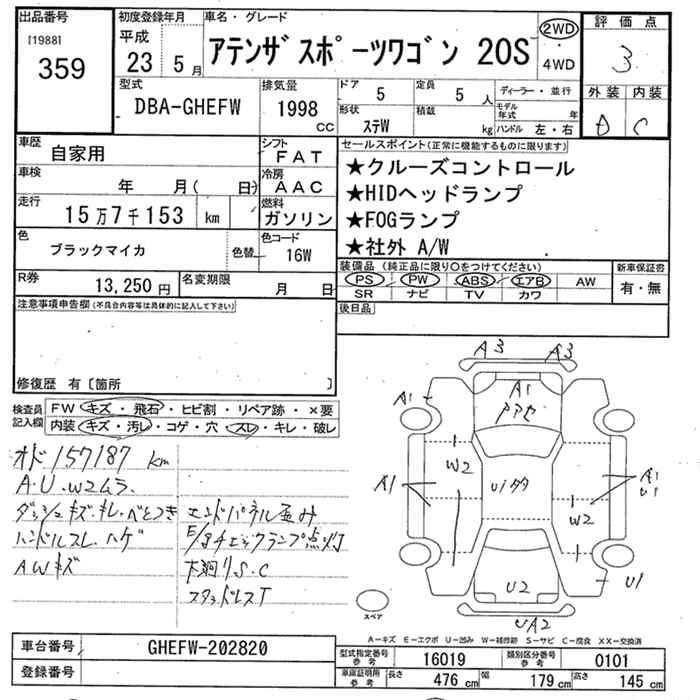 出品番号
[1988]
359
初度登録年月
平成
23 5月
車名・グレード
アテンザスポーツワゴン 20S
2WD
4WD
評価点
3
外装 内装
D C
型式
DBA-GHEFW
排気量
1998
cc
ドア 5
定員 5 人
形状 ステW
積載 kg
ディーラー・並行
モデル年式 年
ハンドル 左・右
車歴
自家用
シフト
FAT
車検
年 月( 日)
冷房
AAC
走行
15万7千153 km
燃料
ガソリン
色
ブラックマイカ
色替
色コード
16W
R券
13,250円
名変期限
月 日
セールスポイント(正常に機能するものに限ります)
★クルーズコントロール
★HIDヘッドランプ
★FOGランプ
★社外 A/W
装備品(純正品に限り○をつけてください)
PS PW ABS エアB AW
SR ナビ TV カワ
新車保証書
有・無
後日品
注意事項申告欄(不具合内容等は具体的に記入して下さい)
修復歴 有[箇所 ]
検査員記入欄
FW キズ・飛石・ヒビ割・リペア跡・×要
内装 キズ・汚レ・コゲ・穴・スレ・キレ・破レ
オド157187 km
A.U.W2ムラ
ダッシュキズ.キレ.べとつき
ハンドルスレ.ハゲ
AWキズ
エンドパネル歪み
E/gチェックランプ点灯
下廻りS.C
スタッドレスT
A3 A3
A1
A1
アアセ
W2
A1
U1
A1
U1
W2
U2
U1
UA2
スペア
A-キズ E-エクボ U-凹み W-補修跡 S-サビ C-腐食 XX-交換済
車台番号
GHEFW-202820
登録番号
型式指定番号 参考
16019
類別区分番号 参考
0101
車庫証明用 参考
長さ 476 cm
幅 179 cm
高さ 145 cm